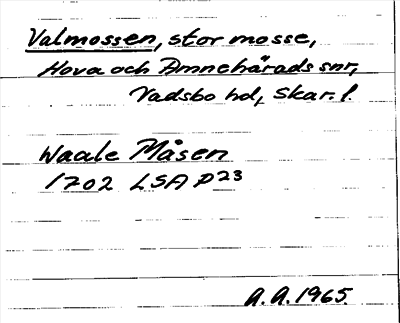 Valmossen, stor mosse,
Hova och Amnehärads snr,
Vadsbo hd, Skar. l.
Waale Måsen
1702 LSA P23
A.A. 1965